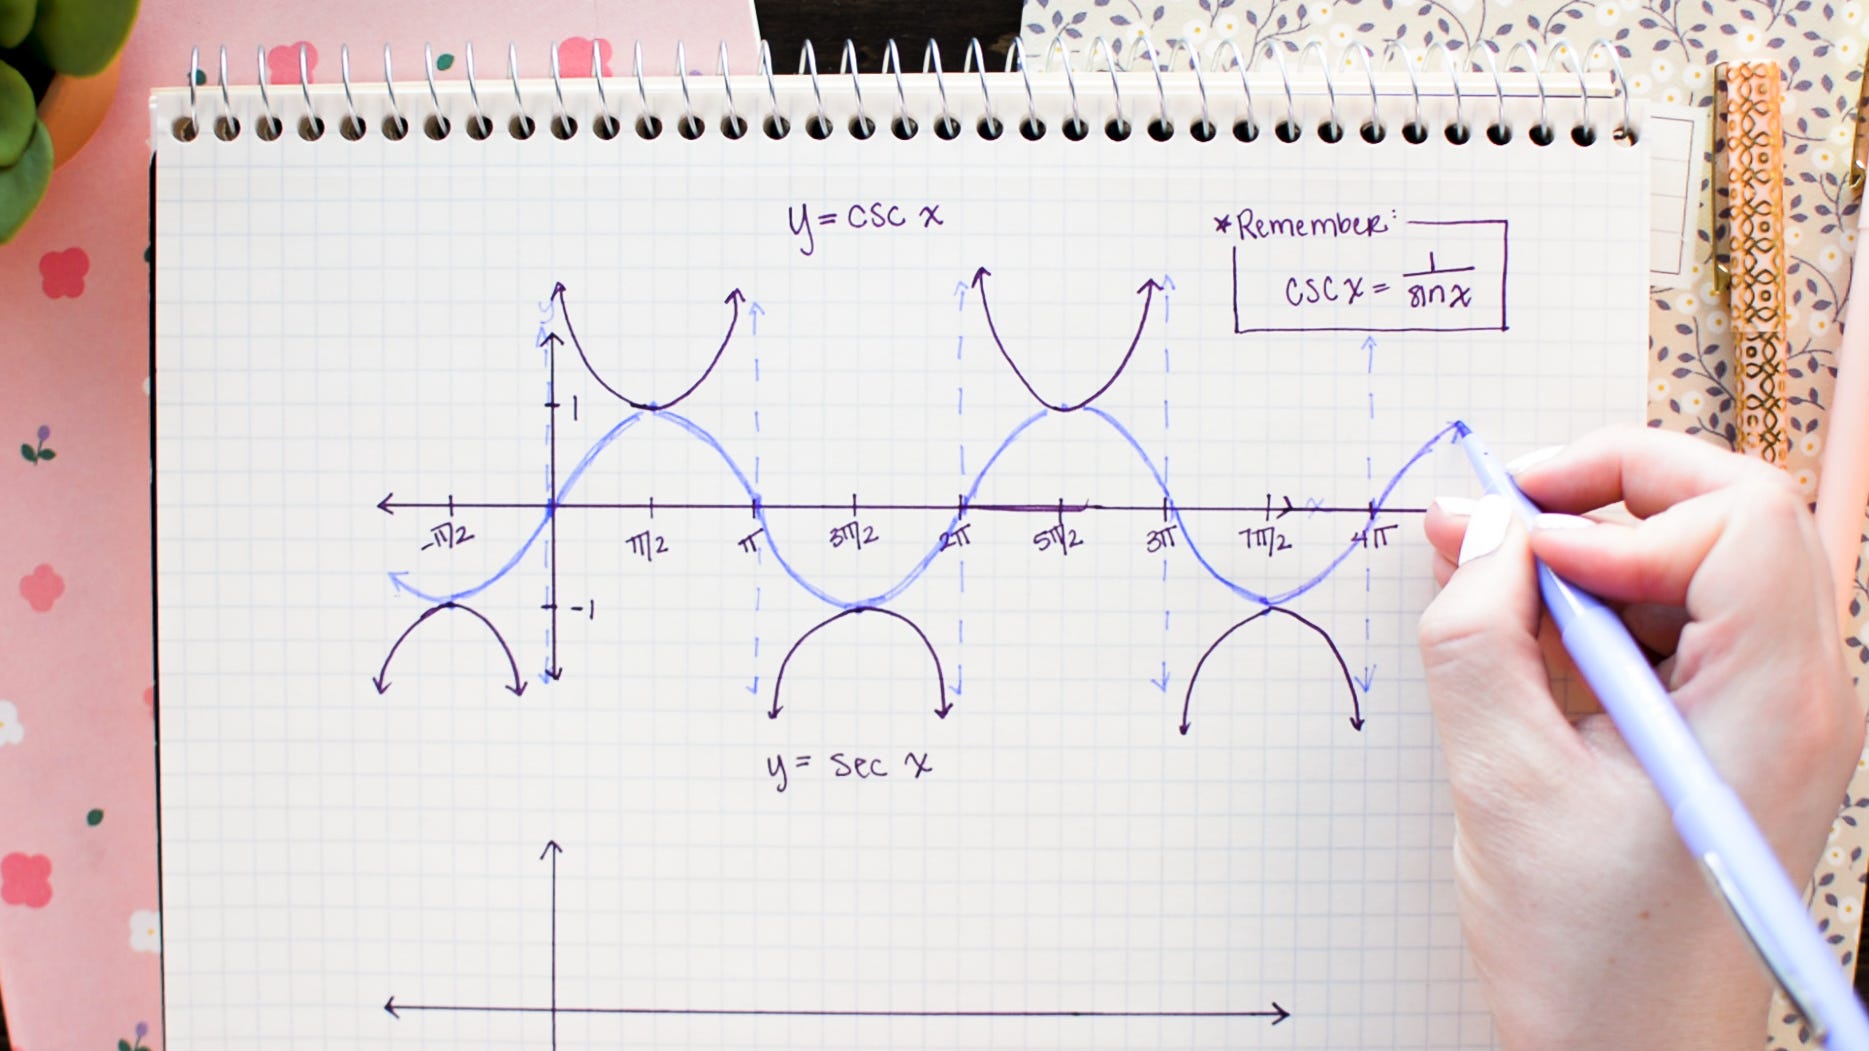 y = csc x
*Remember:
csc x = 1/sin x
y
1
x
-π/2 π/2 π 3π/2 2π 5π/2 3π 7π/2 4π
-1
y = sec x